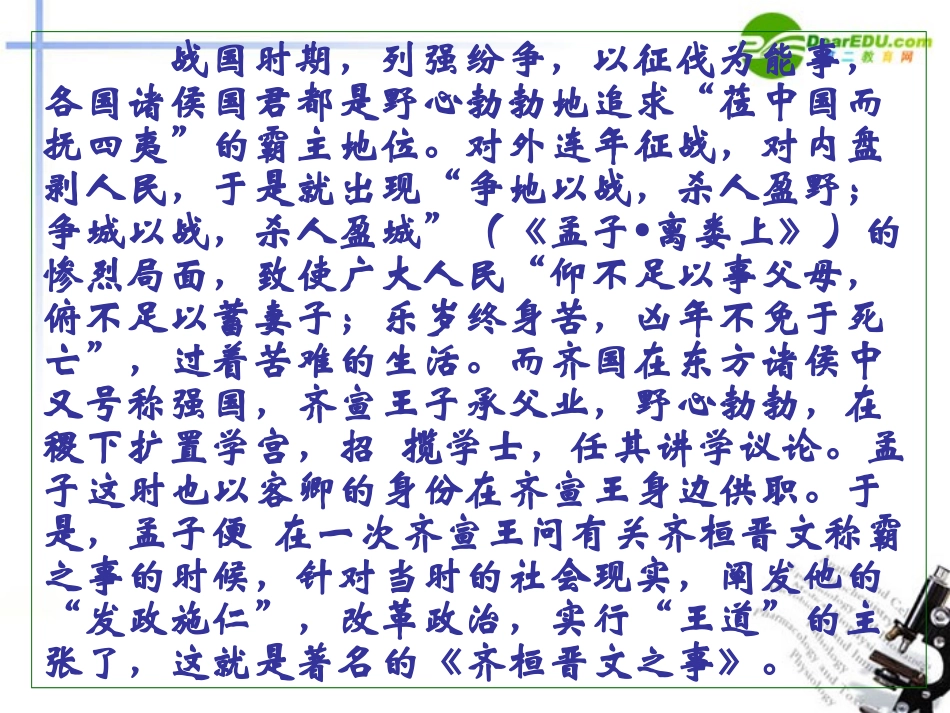 DearEDU.com
第二教育网
战国时期，列强纷争，以征伐为能事，
各国诸侯国君都是野心勃勃地追求“莅中国而
抚四夷”的霸主地位。对外连年征战，对内盘
剥人民，于是就出现“争地以战，杀人盈野；
争城以战，杀人盈城”（《孟子•离娄上》）的
惨烈局面，致使广大人民“仰不足以事父母，
俯不足以蓄妻子；乐岁终身苦，凶年不免于死
亡”，过着苦难的生活。而齐国在东方诸侯中
又号称强国，齐宣王子承父业，野心勃勃，在
稷下扩置学宫，招 揽学士，任其讲学议论。孟
子这时也以客卿的身份在齐宣王身边供职。于
是，孟子便 在一次齐宣王问有关齐桓晋文称霸
之事的时候，针对当时的社会现实，阐发他的
“发政施仁”，改革政治，实行“王道”的主
张了，这就是著名的《齐桓晋文之事》。